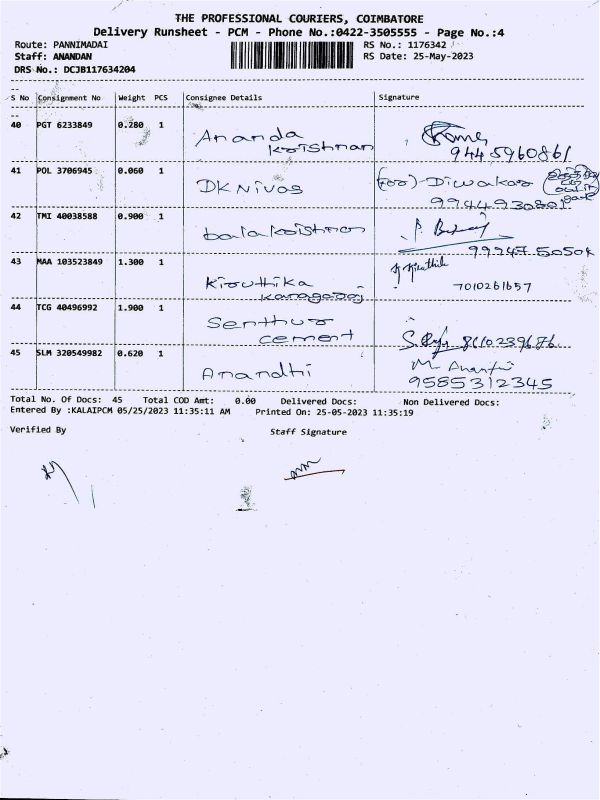 THE PROFESSIONAL COURIERS, COIMBATORE
Delivery Runsheet - PCM - Phone No.:0422-3505555 - Page No.:4
Route: PANNIMADAI RS No.: 1176342
Staff: ANANDAN RS Date: 25-May-2023
DRS No.: DCJB117634204
S No Consignment No Weight PCS Consignee Details Signature
40 PGT 6233849 0.280 1 Ananda
Krishnan 9445960861
41 POL 3706945 0.060 1 DK Nivas (for)-Diwakar
9944930801
42 TMI 40038588 0.900 1 balakrishnan
99947 50504
43 MAA 103523849 1.300 1 Kiruthika
Kanagaraj 7010261657
44 TCG 40496992 1.900 1 Senthur
cement 8610239676
45 SLM 320549982 0.620 1 Anandhi M. Ananthi
9585312345
Total No. Of Docs: 45 Total COD Amt: 0.00 Delivered Docs: Non Delivered Docs:
Entered By :KALAIPCM 05/25/2023 11:35:11 AM Printed On: 25-05-2023 11:35:19
Verified By Staff Signature